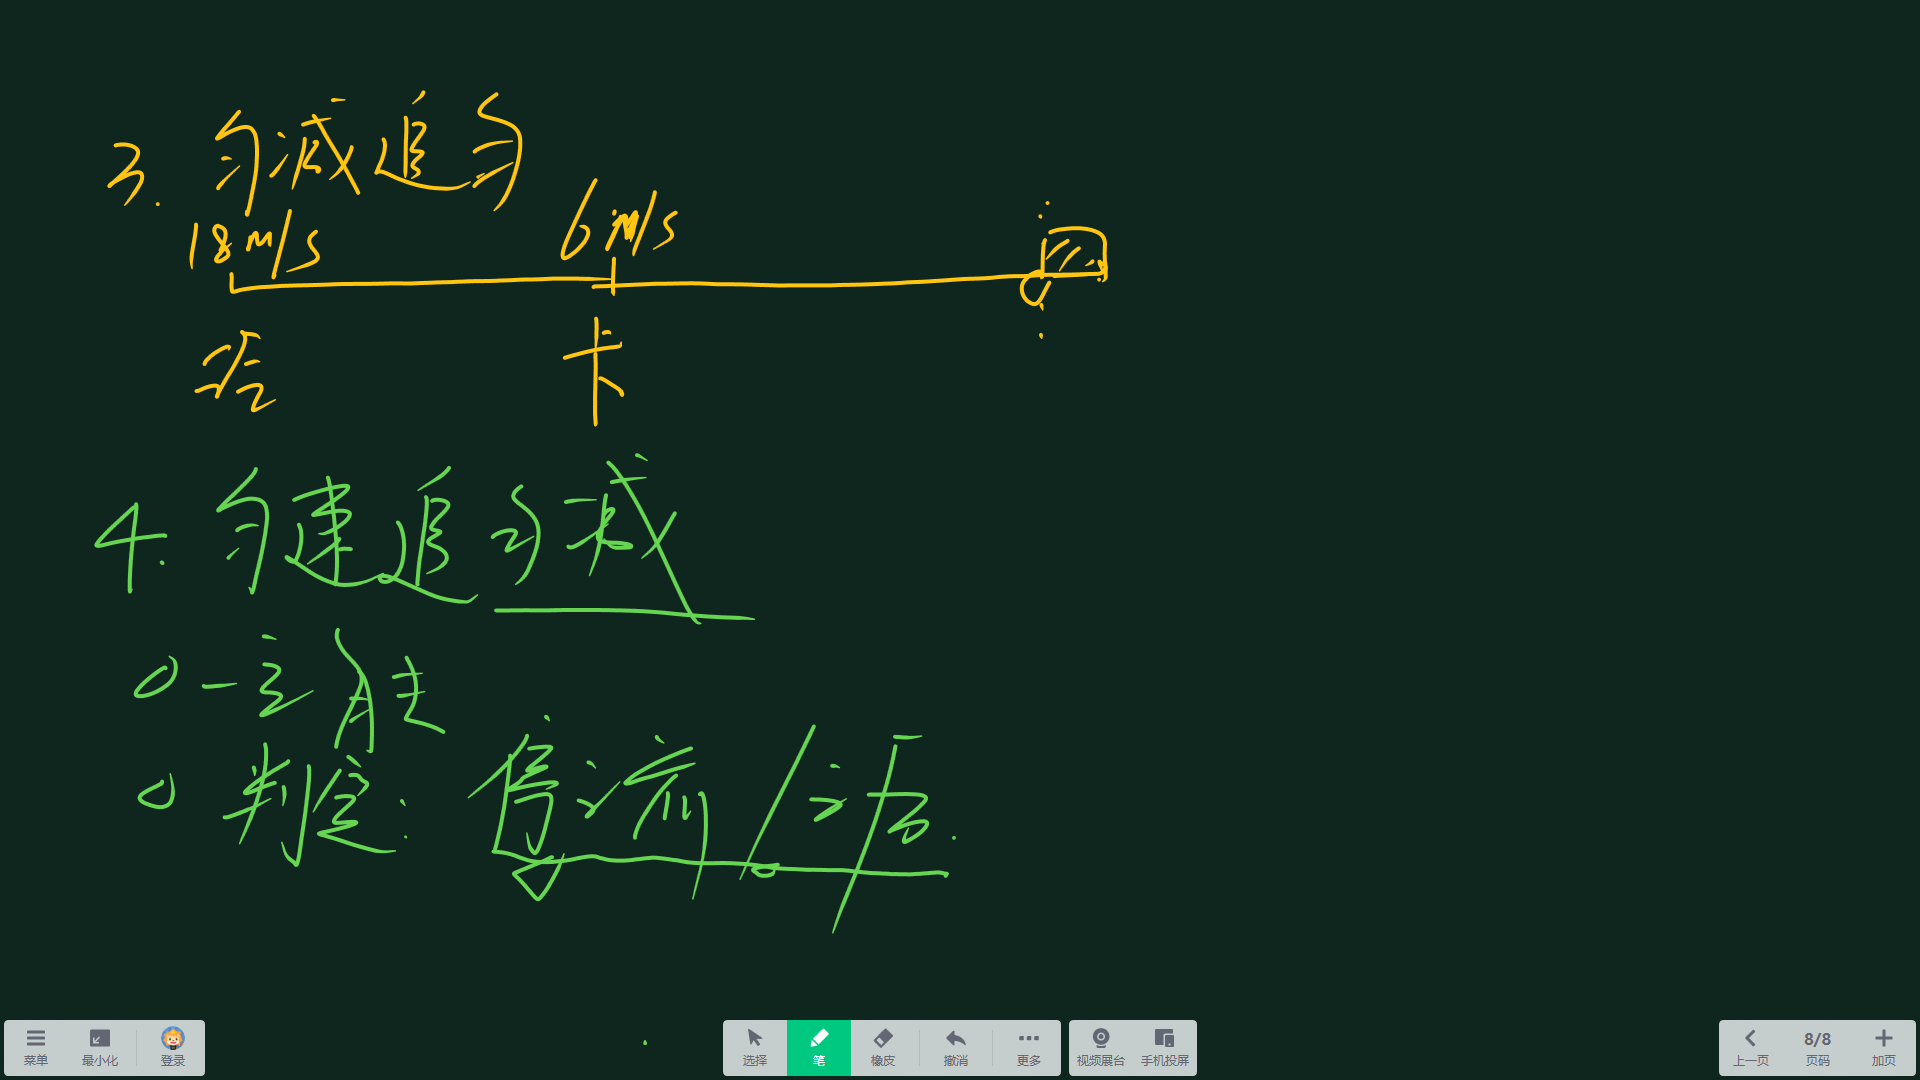 3. 匀减追匀
18m/s 6m/s
卡
4. 匀速追匀减
一定能
判定: 停
菜单 最小化 登录 选择 笔 橡皮 撤消 更多 视频展台 手机投屏 上一页 8/8 页码 加页